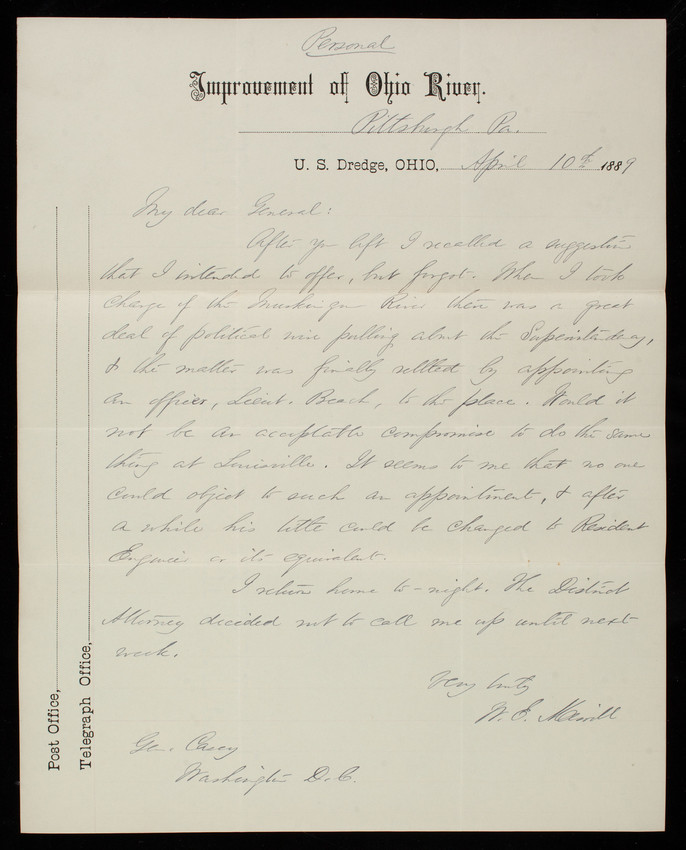 Personal
Improvement of Ohio River.
Pittsburgh Pa.
U. S. Dredge, OHIO, April 10th 1889
My dear General:
After you left I recalled a suggestion
that I intended to offer, but forgot. When I took
charge of the Muskingum River there was a great
deal of political wire pulling about the Superintendency,
& the matter was finally settled by appointing
an officer, Lieut. Beach, to the place. Would it
not be an acceptable compromise to do the same
thing at Louisville. It seems to me that no one
could object to such an appointment, & after
a while his title could be changed to Resident
Engineer or its equivalent.
I return home to-night. The District
Attorney decided not to call me up until next
week.
Very truly
W. E. Merrill
Gen. Casey
Washington D.C.
Post Office,
Telegraph Office,